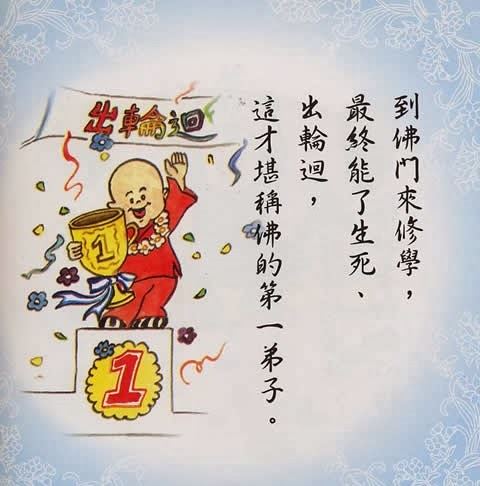 出輪迴
到佛門來修學，
最終能了生死、
出輪迴，
這才堪稱佛的第一弟子。
1
1